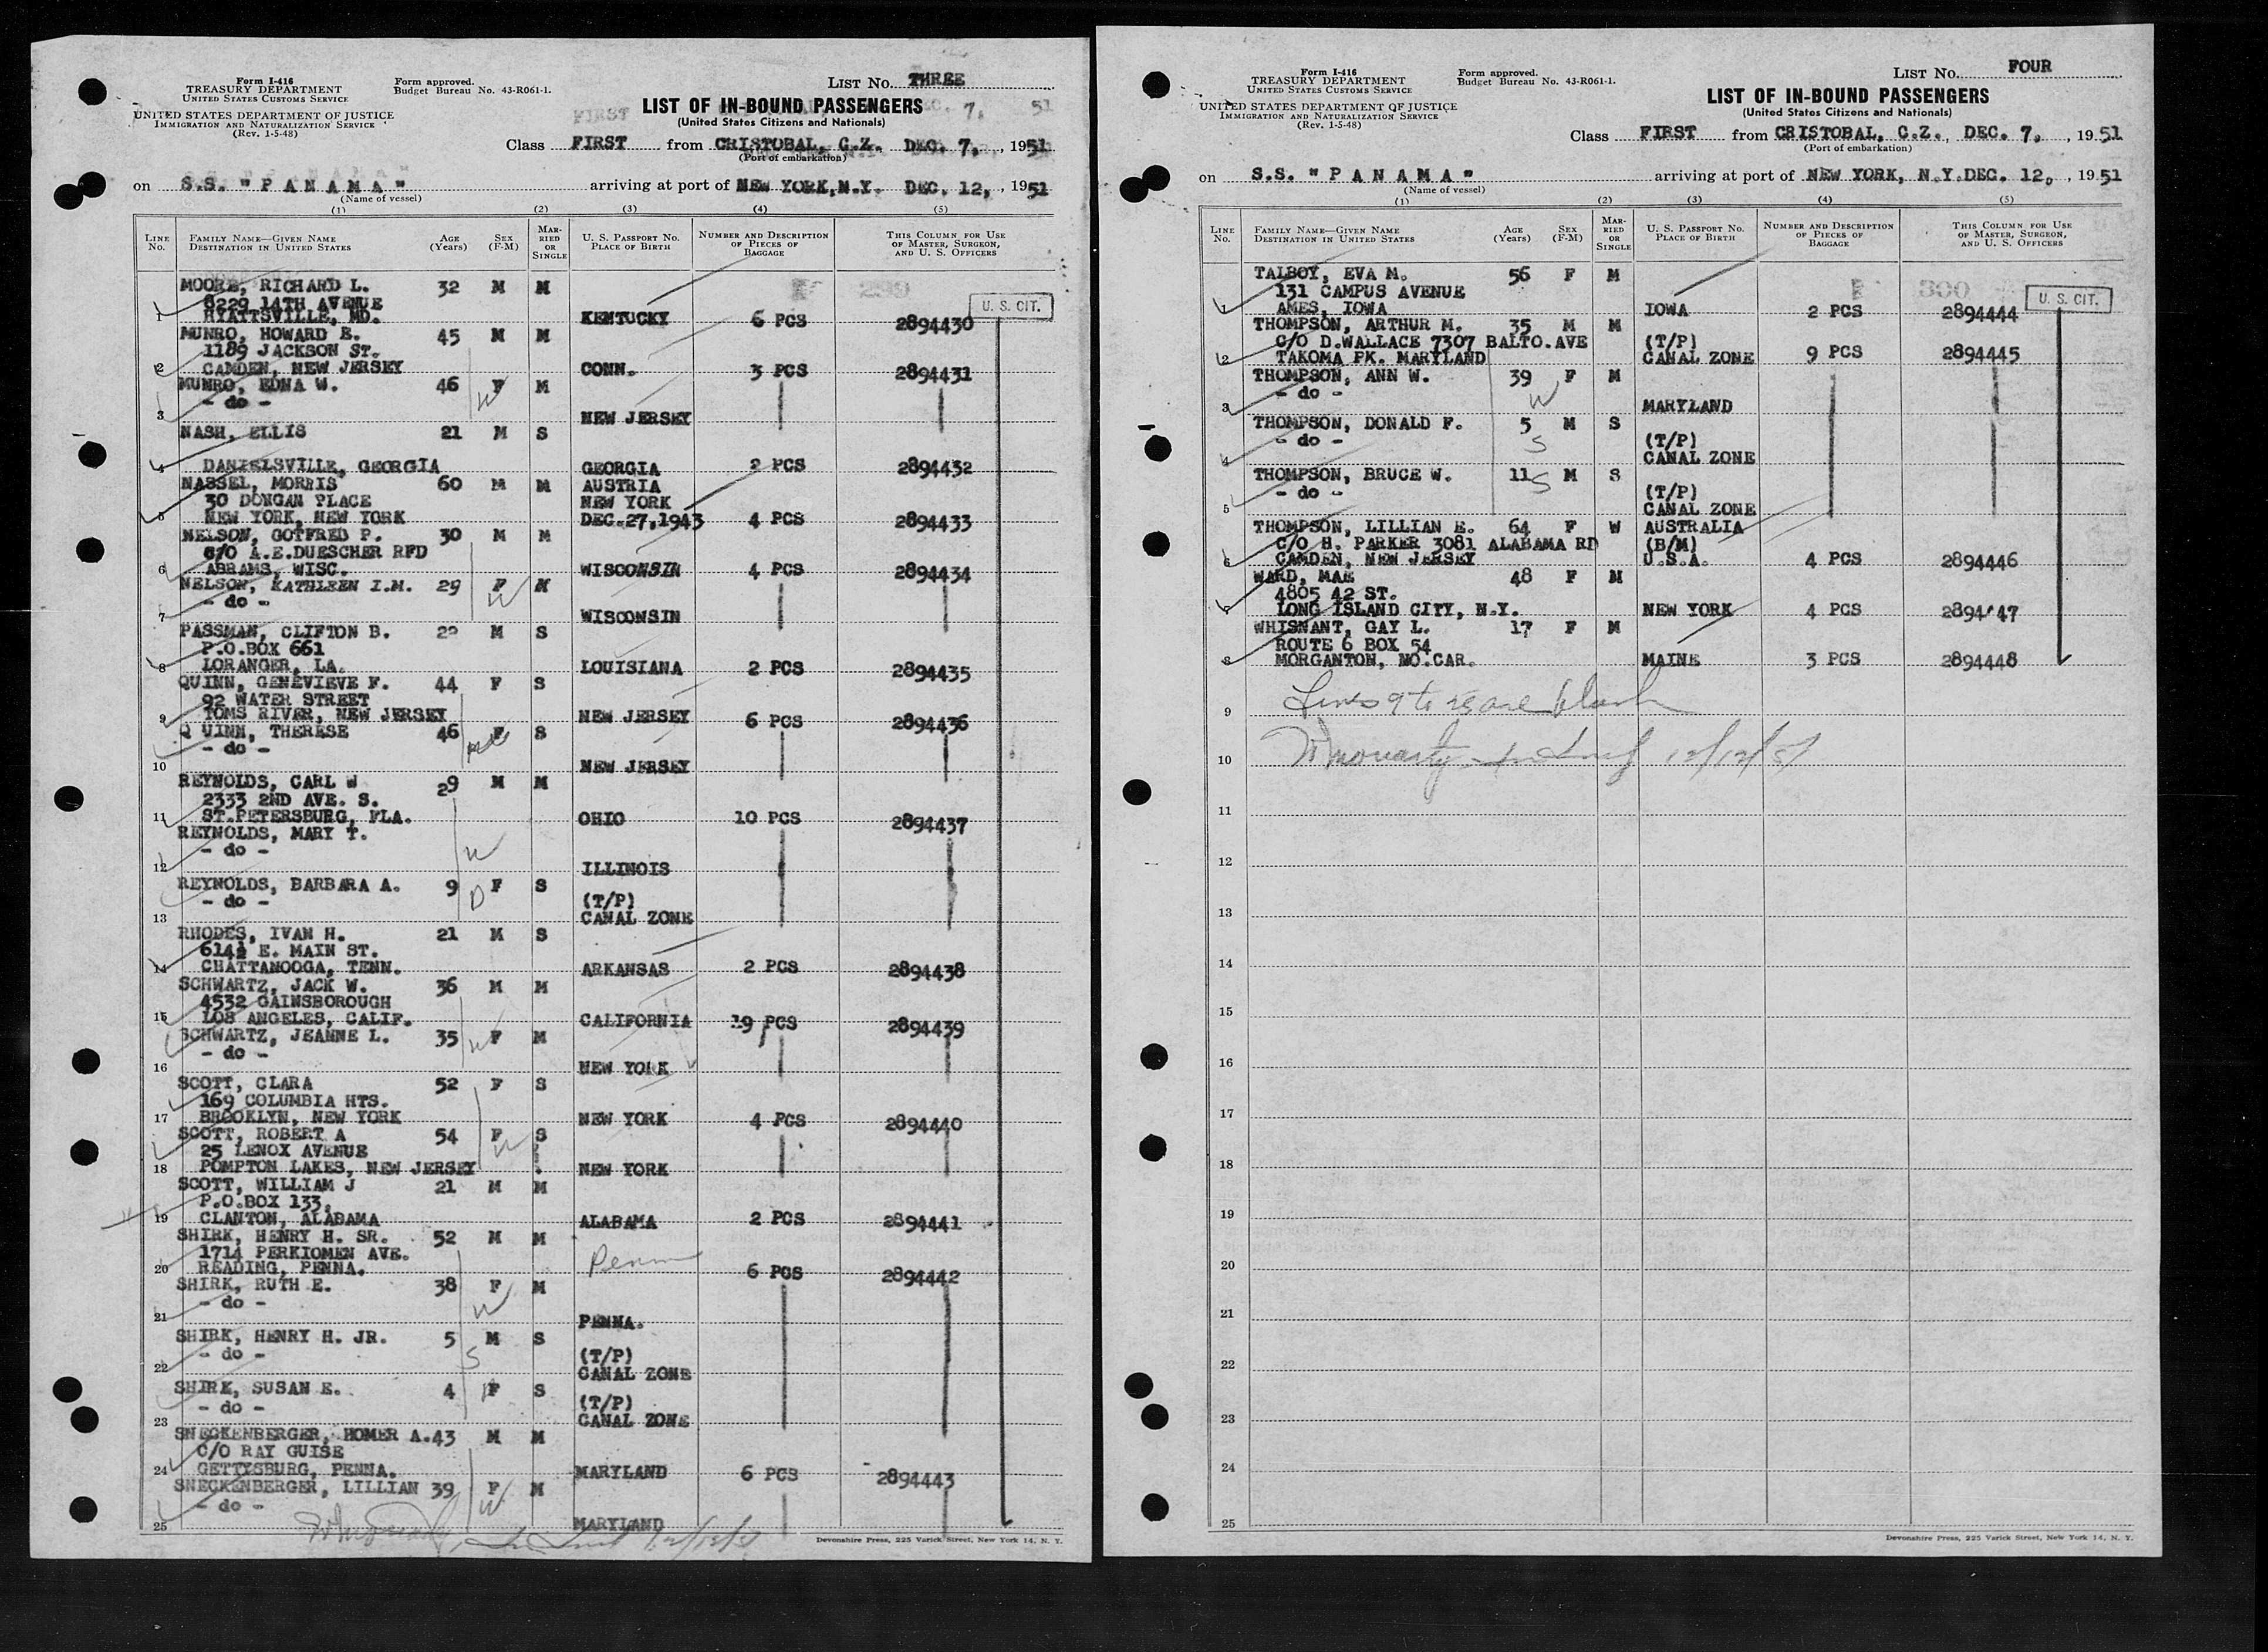 Form I-416
TREASURY DEPARTMENT
UNITED STATES CUSTOMS SERVICE
UNITED STATES DEPARTMENT OF JUSTICE
IMMIGRATION AND NATURALIZATION SERVICE
(Rev. 1-5-48)
Form approved.
Budget Bureau No. 43-R061-1.
LIST NO. THREE
LIST OF IN-BOUND PASSENGERS
(United States Citizens and Nationals)
Class FIRST from CRISTOBAL, C.Z. DEC. 7, , 1951
(Port of embarkation)
on S.S. "P A N A M A" arriving at port of NEW YORK,N.Y. DEC. 12, , 1951
(Name of vessel)
(1) (2) (3) (4) (5)
LINE NO. FAMILY NAME—GIVEN NAME DESTINATION IN UNITED STATES AGE (Years) SEX (F-M) MARRIED OR SINGLE U. S. PASSPORT NO. PLACE OF BIRTH NUMBER AND DESCRIPTION OF PIECES OF BAGGAGE THIS COLUMN FOR USE OF MASTER, SURGEON, AND U. S. OFFICERS
U. S. CIT.
MOORE, RICHARD L. 32 M M
8229 14TH AVENUE
1 HYATTSVILLE, MD. KENTUCKY 6 PCS 2894430
MUNRO, HOWARD E. 45 M M
1189 JACKSON ST.
2 CAMDEN, NEW JERSEY CONN. 3 PCS 2894431
MUNRO, EDNA W. 46 F M
- do -
3 NEW JERSEY
NASH, ELLIS 21 M S
4 DANIELSVILLE, GEORGIA GEORGIA 2 PCS 2894432
NASSEL, MORRIS 60 M M AUSTRIA
30 DONGAN PLACE NEW YORK
5 NEW YORK, NEW YORK DEC.27,1943 4 PCS 2894433
NELSON, GOTFRED P. 30 M M
C/O A.E.DUESCHER RFD
6 ABRAMS, WISC. WISCONSIN 4 PCS 2894434
NELSON, KATHLEEN I.M. 29 F M
- do -
7 WISCONSIN
PASSMAN, CLIFTON B. M S
P.O.BOX 661
8 LORANGER, LA. LOUISIANA 2 PCS 2894435
QUINN, GENEVIEVE F. 44 F S
92 WATER STREET
9 TOMS RIVER, NEW JERSEY NEW JERSEY 6 PCS 2894436
Q UINN, THERESE 46 F S
- do -
10 NEW JERSEY
REYNOLDS, CARL W 29 M M
2333 2ND AVE. S.
11 ST.PETERSBURG, FLA. OHIO 10 PCS 2894437
REYNOLDS, MARY T.
- do -
12 ILLINOIS
REYNOLDS, BARBARA A. 9 F S
- do - (T/P)
13 CANAL ZONE
RHODES, IVAN H. 21 M S
614½ E. MAIN ST.
14 CHATTANOOGA, TENN. ARKANSAS 2 PCS 2894438
SCHWARTZ, JACK W. 36 M M
4532 GAINSBOROUGH
15 LOS ANGELES, CALIF. CALIFORNIA 19 PCS 2894439
SCHWARTZ, JEANNE L. 35 F M
- do -
16 NEW YORK
SCOTT, CLARA 52 F S
169 COLUMBIA HTS.
17 BROOKLYN, NEW YORK NEW YORK 4 PCS 2894440
SCOTT, ROBERT A 54 F S
25 LENOX AVENUE
18 POMPTON LAKES, NEW JERSEY NEW YORK
SCOTT, WILLIAM J 21 M M
P.O.BOX 133,
19 CLANTON, ALABAMA ALABAMA 2 PCS 2894441
SHIRK, HENRY H. SR. 52 M M
1714 PERKIOMEN AVE.
20 READING, PENNA. Penn 6 PCS 2894442
SHIRK, RUTH E. 38 F M
- do -
21 PENNA.
SHIRK, HENRY H. JR. 5 M S
- do - (T/P)
22 CANAL ZONE
SHIRK, SUSAN E. 4 F S
- do - (T/P)
23 CANAL ZONE
SNECKENBERGER, HOMER A. 43 M M
C/O RAY GUISE
24 GETTYSBURG, PENNA. MARYLAND 6 PCS 2894443
SNECKENBERGER, LILLIAN 39 F M
- do -
25 MARYLAND
Devonshire Press, 225 Varick Street, New York 14, N. Y.
Form I-416
TREASURY DEPARTMENT
UNITED STATES CUSTOMS SERVICE
UNITED STATES DEPARTMENT OF JUSTICE
IMMIGRATION AND NATURALIZATION SERVICE
(Rev. 1-5-48)
Form approved.
Budget Bureau No. 43-R061-1.
LIST NO. FOUR
LIST OF IN-BOUND PASSENGERS
(United States Citizens and Nationals)
Class FIRST from CRISTOBAL, C.Z. DEC. 7, , 1951
(Port of embarkation)
on S.S. "P A N A M A" arriving at port of NEW YORK, N.Y.DEC. 12, , 1951
(Name of vessel)
(1) (2) (3) (4) (5)
LINE NO. FAMILY NAME—GIVEN NAME DESTINATION IN UNITED STATES AGE (Years) SEX (F-M) MARRIED OR SINGLE U. S. PASSPORT NO. PLACE OF BIRTH NUMBER AND DESCRIPTION OF PIECES OF BAGGAGE THIS COLUMN FOR USE OF MASTER, SURGEON, AND U. S. OFFICERS
300 U. S. CIT.
TALBOY, EVA M. 56 F M
131 CAMPUS AVENUE
1 AMES, IOWA IOWA 2 PCS 2894444
THOMPSON, ARTHUR M. 35 M M
C/O D.WALLACE 7307 BALTO.AVE (T/P)
2 TAKOMA PK. MARYLAND CANAL ZONE 9 PCS 2894445
THOMPSON, ANN W. 39 F M
- do -
3 MARYLAND
THOMPSON, DONALD F. 5 M S
- do - (T/P)
4 CANAL ZONE
THOMPSON, BRUCE W. 11 M S
- do - (T/P)
5 CANAL ZONE
THOMPSON, LILLIAN E. 64 F W AUSTRALIA
C/O H. PARKER 3081 ALABAMA RD (B/M)
6 CAMDEN, NEW JERSEY U.S.A. 4 PCS 2894446
WARD, MAE 48 F M
4805 42 ST.
7 LONG ISLAND CITY, N.Y. NEW YORK 4 PCS 2894447
WHISNANT, GAY L. 17 F M
ROUTE 6 BOX 54
8 MORGANTON, NO.CAR. MAINE 3 PCS 2894448
9 Lines 9 to 25 are blank
10 12/12/51
11
12
13
14
15
16
17
18
19
20
21
22
23
24
25
Devonshire Press, 225 Varick Street, New York 14, N. Y.